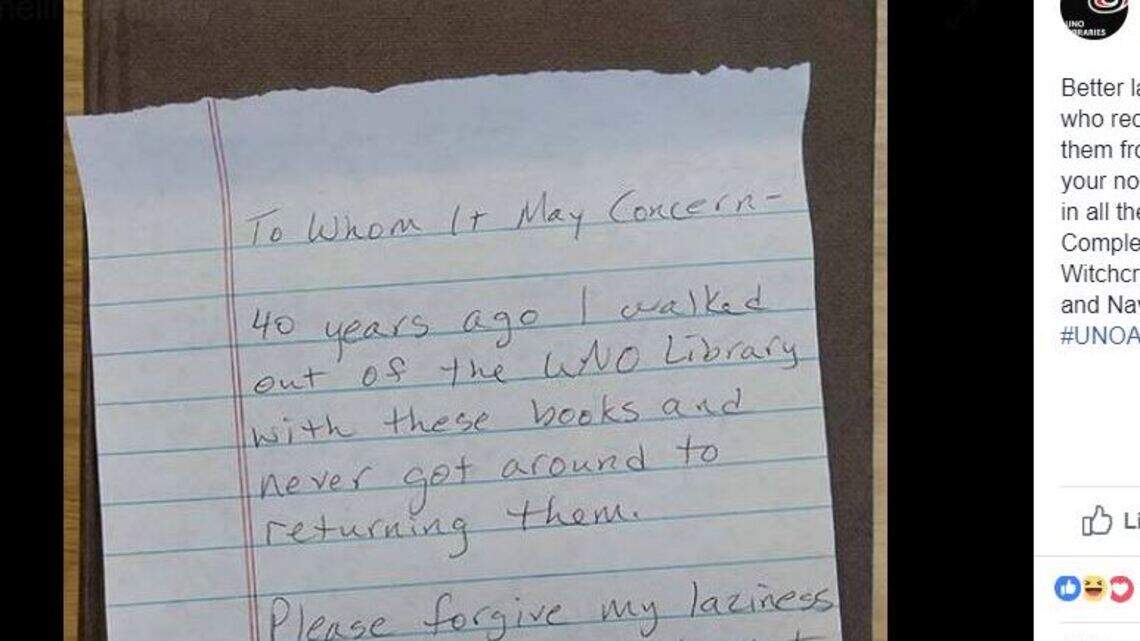 To Whom It May Concern-
40 years ago I walked
out of the UNO Library
with these books and
never got around to
returning them.
Please forgive my laziness
UNO
Better la
who rec
them fro
your no
in all the
Comple
Witchcr
and Nav
#UNOA
Li